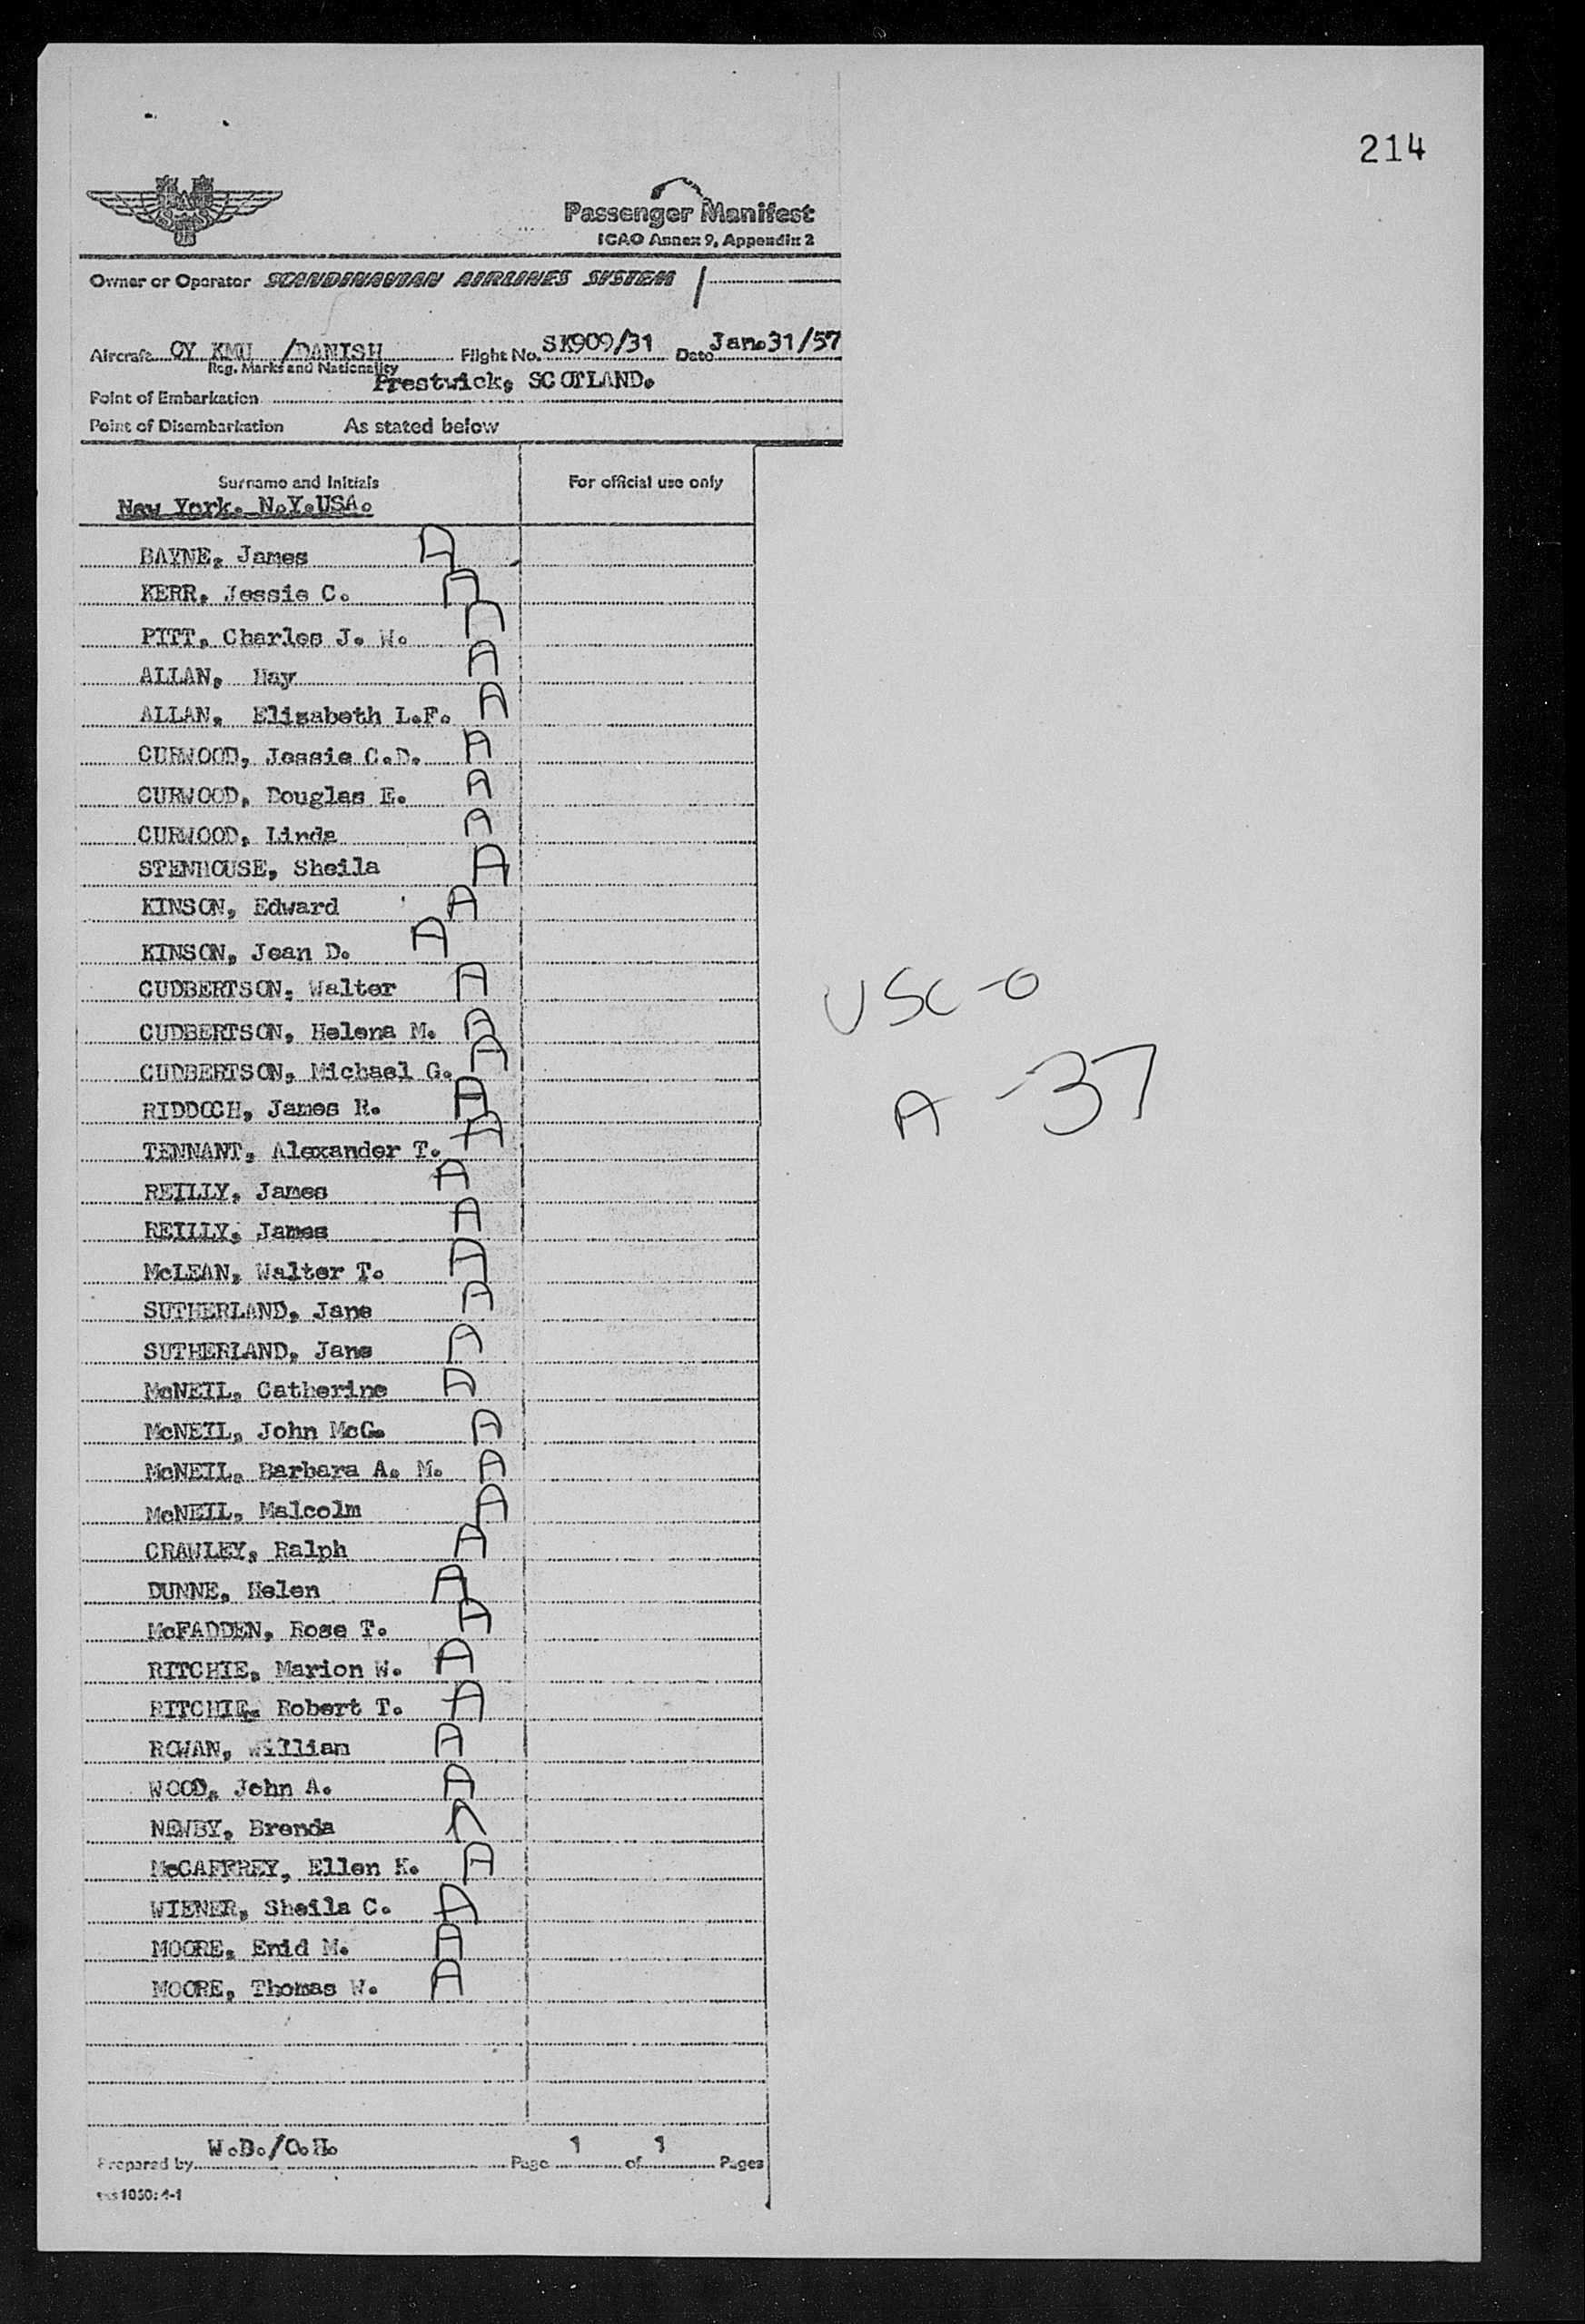 214
SAS
Passenger Manifest
ICAO Annex 9, Appendix 2
Owner or Operator SCANDINAVIAN AIRLINES SYSTEM /
Aircraft OY KMU /DANISH Flight No. SK909/31 Date Jan.31/57
Reg. Marks and Nationality
Point of Embarkation Prestwick, SCOTLAND.
Point of Disembarkation As stated below
Surname and Initials For official use only
New York. N.Y.USA.
BAYNE, James A
KERR, Jessie C. A
PITT, Charles J. W. A
ALLAN, May A
ALLAN, Elizabeth L.F. A
CURWOOD, Jessie C.D. A
CURWOOD, Douglas E. A
CURWOOD, Linda A
STENHOUSE, Sheila A
KINSON, Edward A
KINSON, Jean D. A
CUDBERTSON, Walter A
CUDBERTSON, Helena M. A
CUDBERTSON, Michael G. A
RIDDOCH, James R. A
TENNANT, Alexander T. A
REILLY, James A
REILLY, James A
McLEAN, Walter T. A
SUTHERLAND, Jane A
SUTHERLAND, Jane A
McNEIL, Catherine A
McNEIL, John McG. A
McNEIL, Barbara A. M. A
McNEIL, Malcolm A
CRAWLEY, Ralph A
DUNNE, Helen A
McFADDEN, Rose T. A
RITCHIE, Marion W. A
RITCHIE, Robert T. A
ROWAN, William A
WOOD, John A. A
NEWBY, Brenda A
McCAFFREY, Ellen K. A
WIENER, Sheila C. A
MOORE, Enid M. A
MOORE, Thomas W. A
USC-0
A-37
Prepared by W.D./C.H. Page 1 of 1 Pages
1050: 4-1